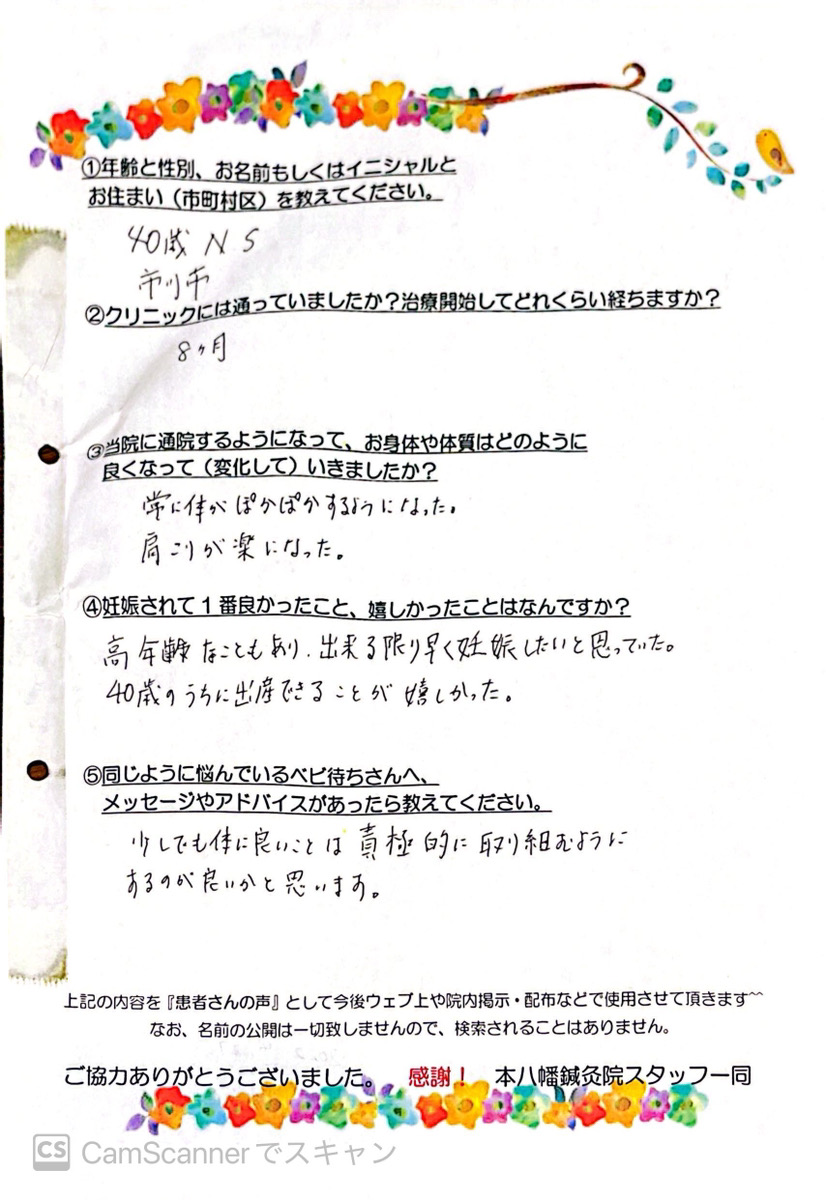 ①年齢と性別、お名前もしくはイニシャルと
お住まい（市町村区）を教えてください。
40歳 N S
市川市
②クリニックには通っていましたか？治療開始してどれくらい経ちますか？
8ヶ月
③当院に通院するようになって、お身体や体質はどのように
良くなって（変化して）いきましたか？
常に体がぽかぽかするようになった。
肩こりが楽になった。
④妊娠されて１番良かったこと、嬉しかったことはなんですか？
高年齢なこともあり、出来る限り早く妊娠したいと思っていた。
40歳のうちに出産できることが嬉しかった。
⑤同じように悩んでいるベビ待ちさんへ、
メッセージやアドバイスがあったら教えてください。
少しでも体に良いことは責極的に取り組むように
するのが良いかと思います。
上記の内容を『患者さんの声』として今後ウェブ上や院内掲示・配布などで使用させて頂きます^^
なお、名前の公開は一切致しませんので、検索されることはありません。
ご協力ありがとうございました。 感謝！ 本八幡鍼灸院スタッフ一同
CS CamScannerでスキャン